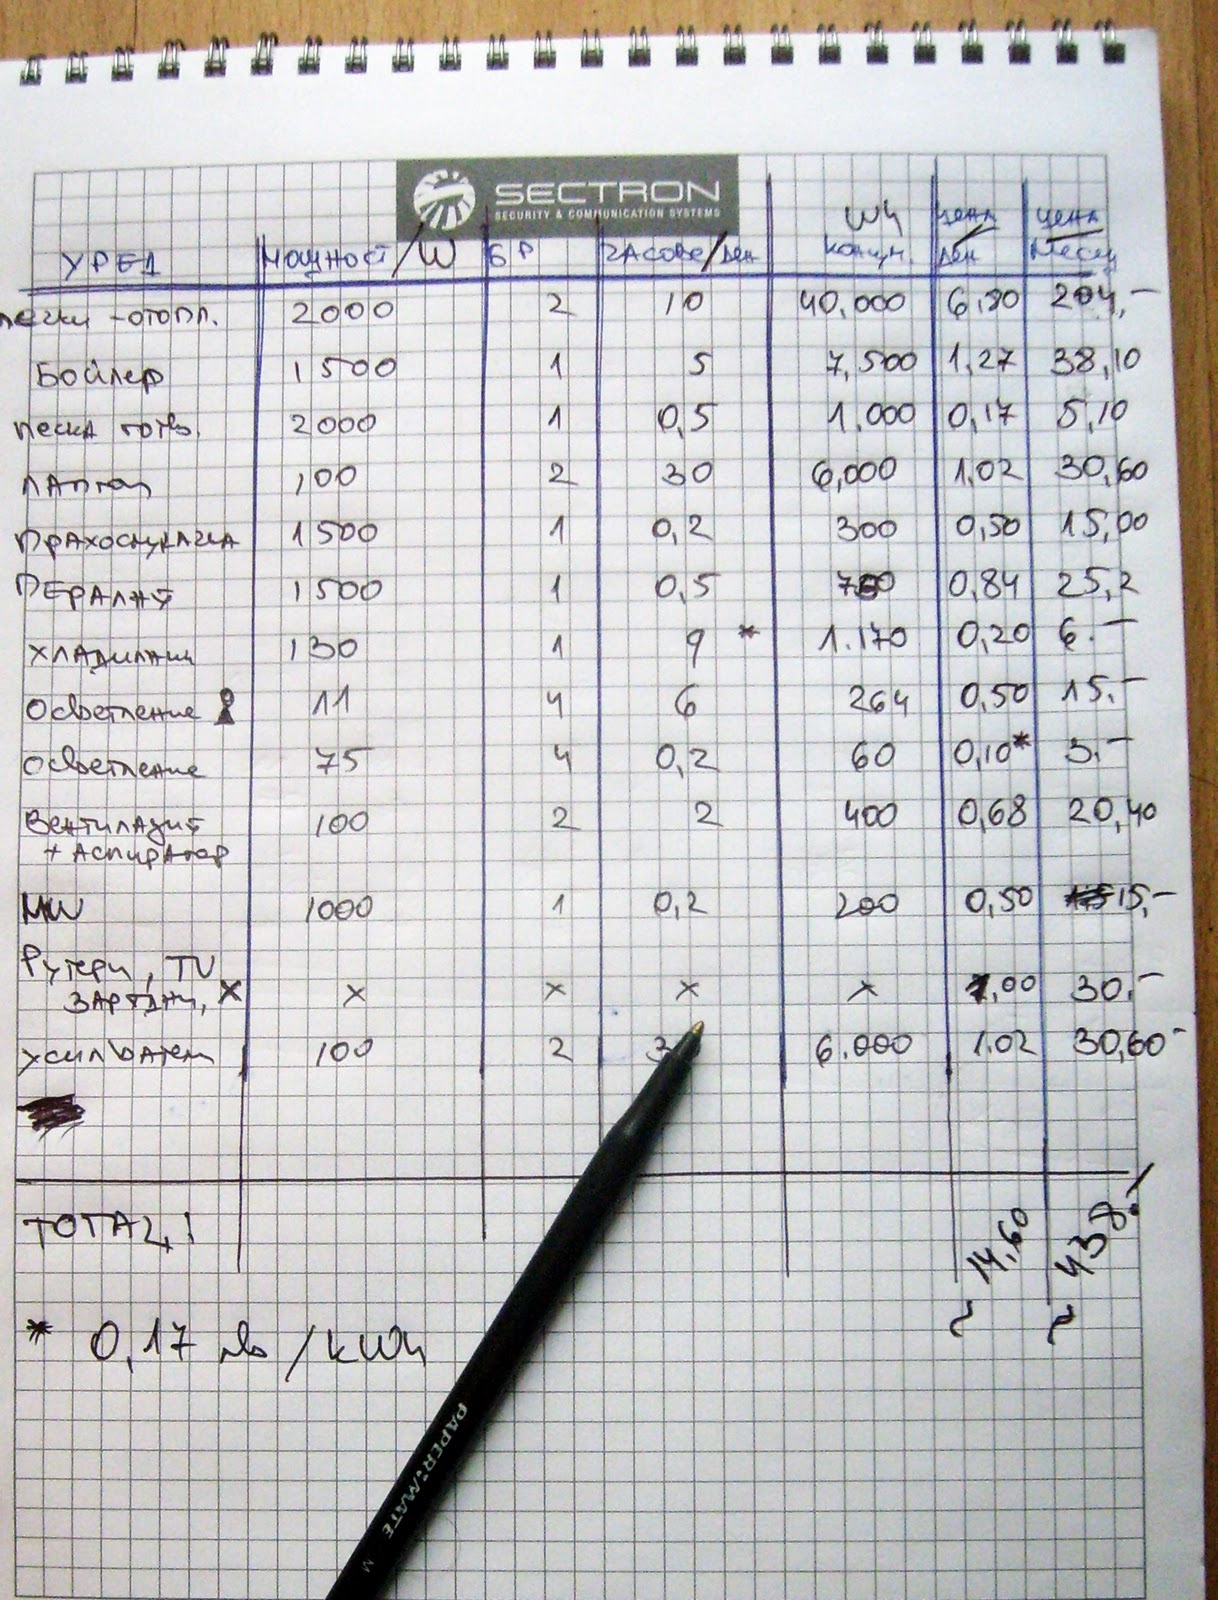 SECTRON
SECURITY & COMMUNICATION SYSTEMS
УРЕД мощност/W БР часове/ден Wh консум. цена/ден цена/месец
печки -отопл. 2000 2 10 40,000 6,80 204,-
Бойлер 1500 1 5 7,500 1,27 38,10
печка готв. 2000 1 0,5 1.000 0,17 5,10
лаптоп 100 2 30 6,000 1.02 30,60
прахосмукачка 1500 1 0,2 300 0,50 15,00
ПЕРАЛНЯ 1500 1 0,5 750 0,84 25,2
хладилник 130 1 9 * 1.170 0,20 6.-
Осветление 11 4 6 264 0,50 15.-
осветление 75 4 0,2 60 0,10* 3.-
Вентилация 100 2 2 400 0,68 20,40
+ аспиратор
MW 1000 1 0,2 200 0,50 15,-
Рутери, TV
зарядни, x x x x x 1,00 30.-
усилватели 100 2 6.000 1.02 30,60-
TOTAL: ~ 14,60 ~ 438.-
* 0,17 лв/kWh
PAPER:MATE
M